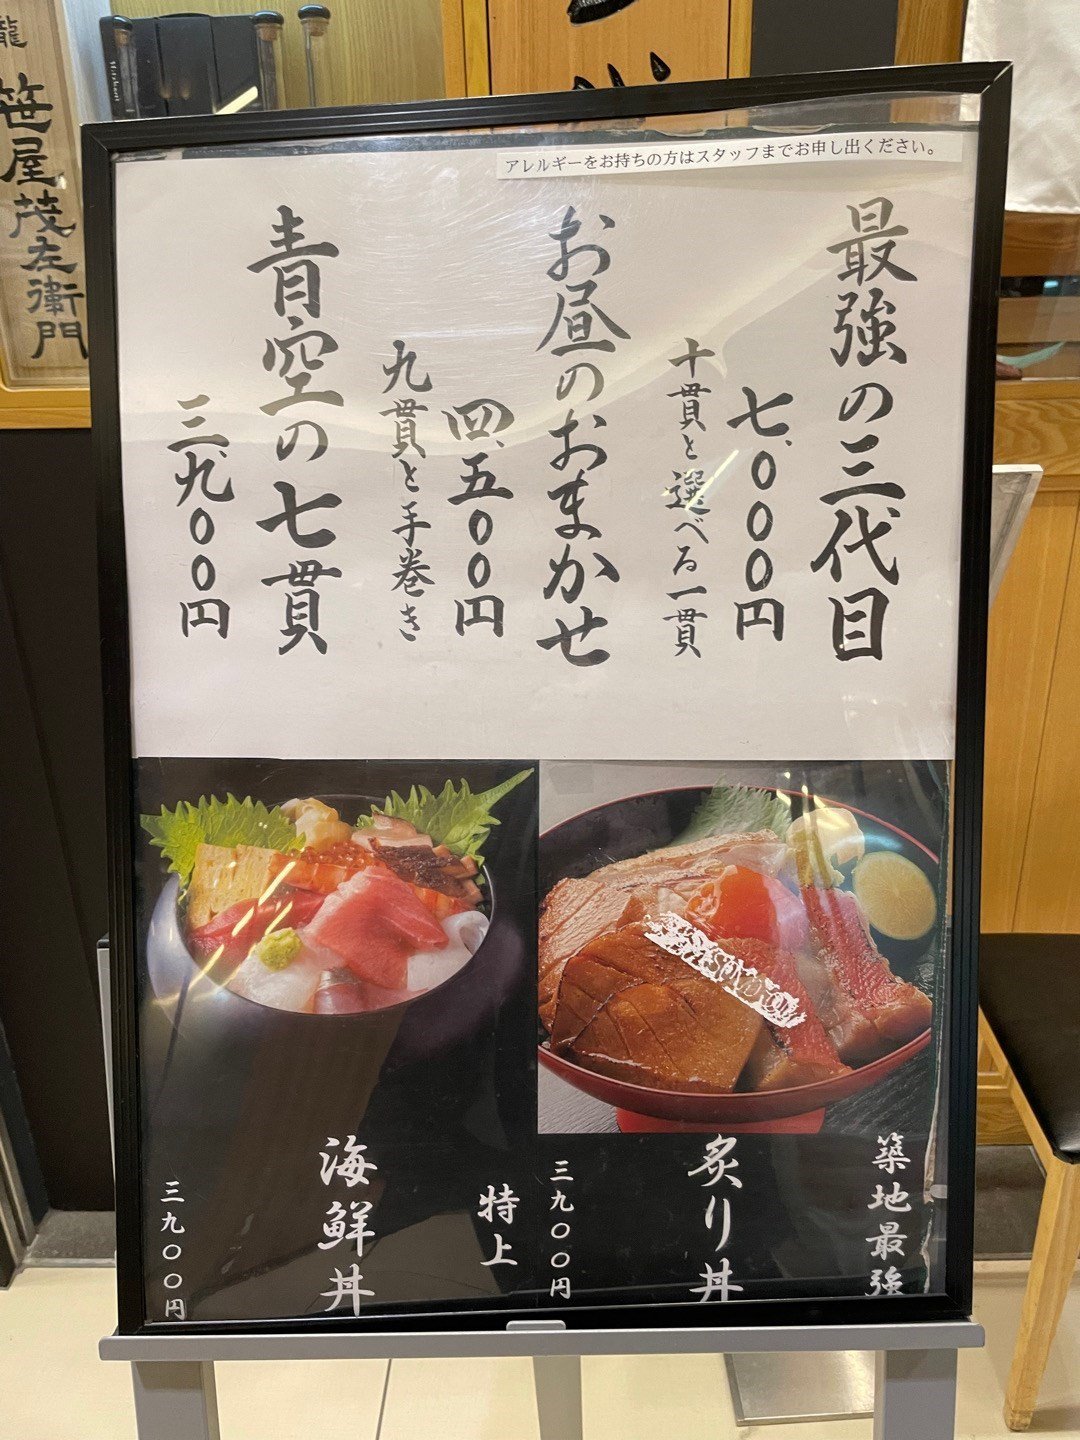 アレルギーをお持ちの方はスタッフまでお申し出ください。
最強の三代目
七、〇〇〇円
十貫と選べる一貫
お昼のおまかせ
四、五〇〇円
九貫と手巻き
青空の七貫
三、九〇〇円
築地最強
炙り丼
三九〇〇円
特上
海鮮丼
三九〇〇円
龍
笹屋茂左衛門